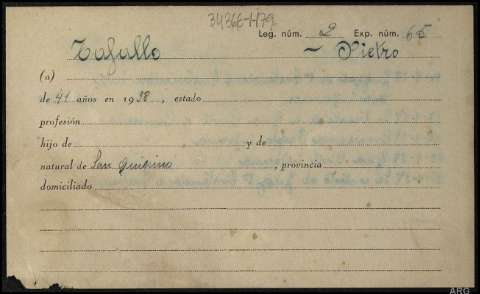 34366-1179
Leg. núm. 2 Exp. núm. 65
Tofallo ~ Pietro
(a)
de 41 años en 1938, estado
profesión
hijo de y de
natural de San Quirino, provincia
domiciliado
ARG